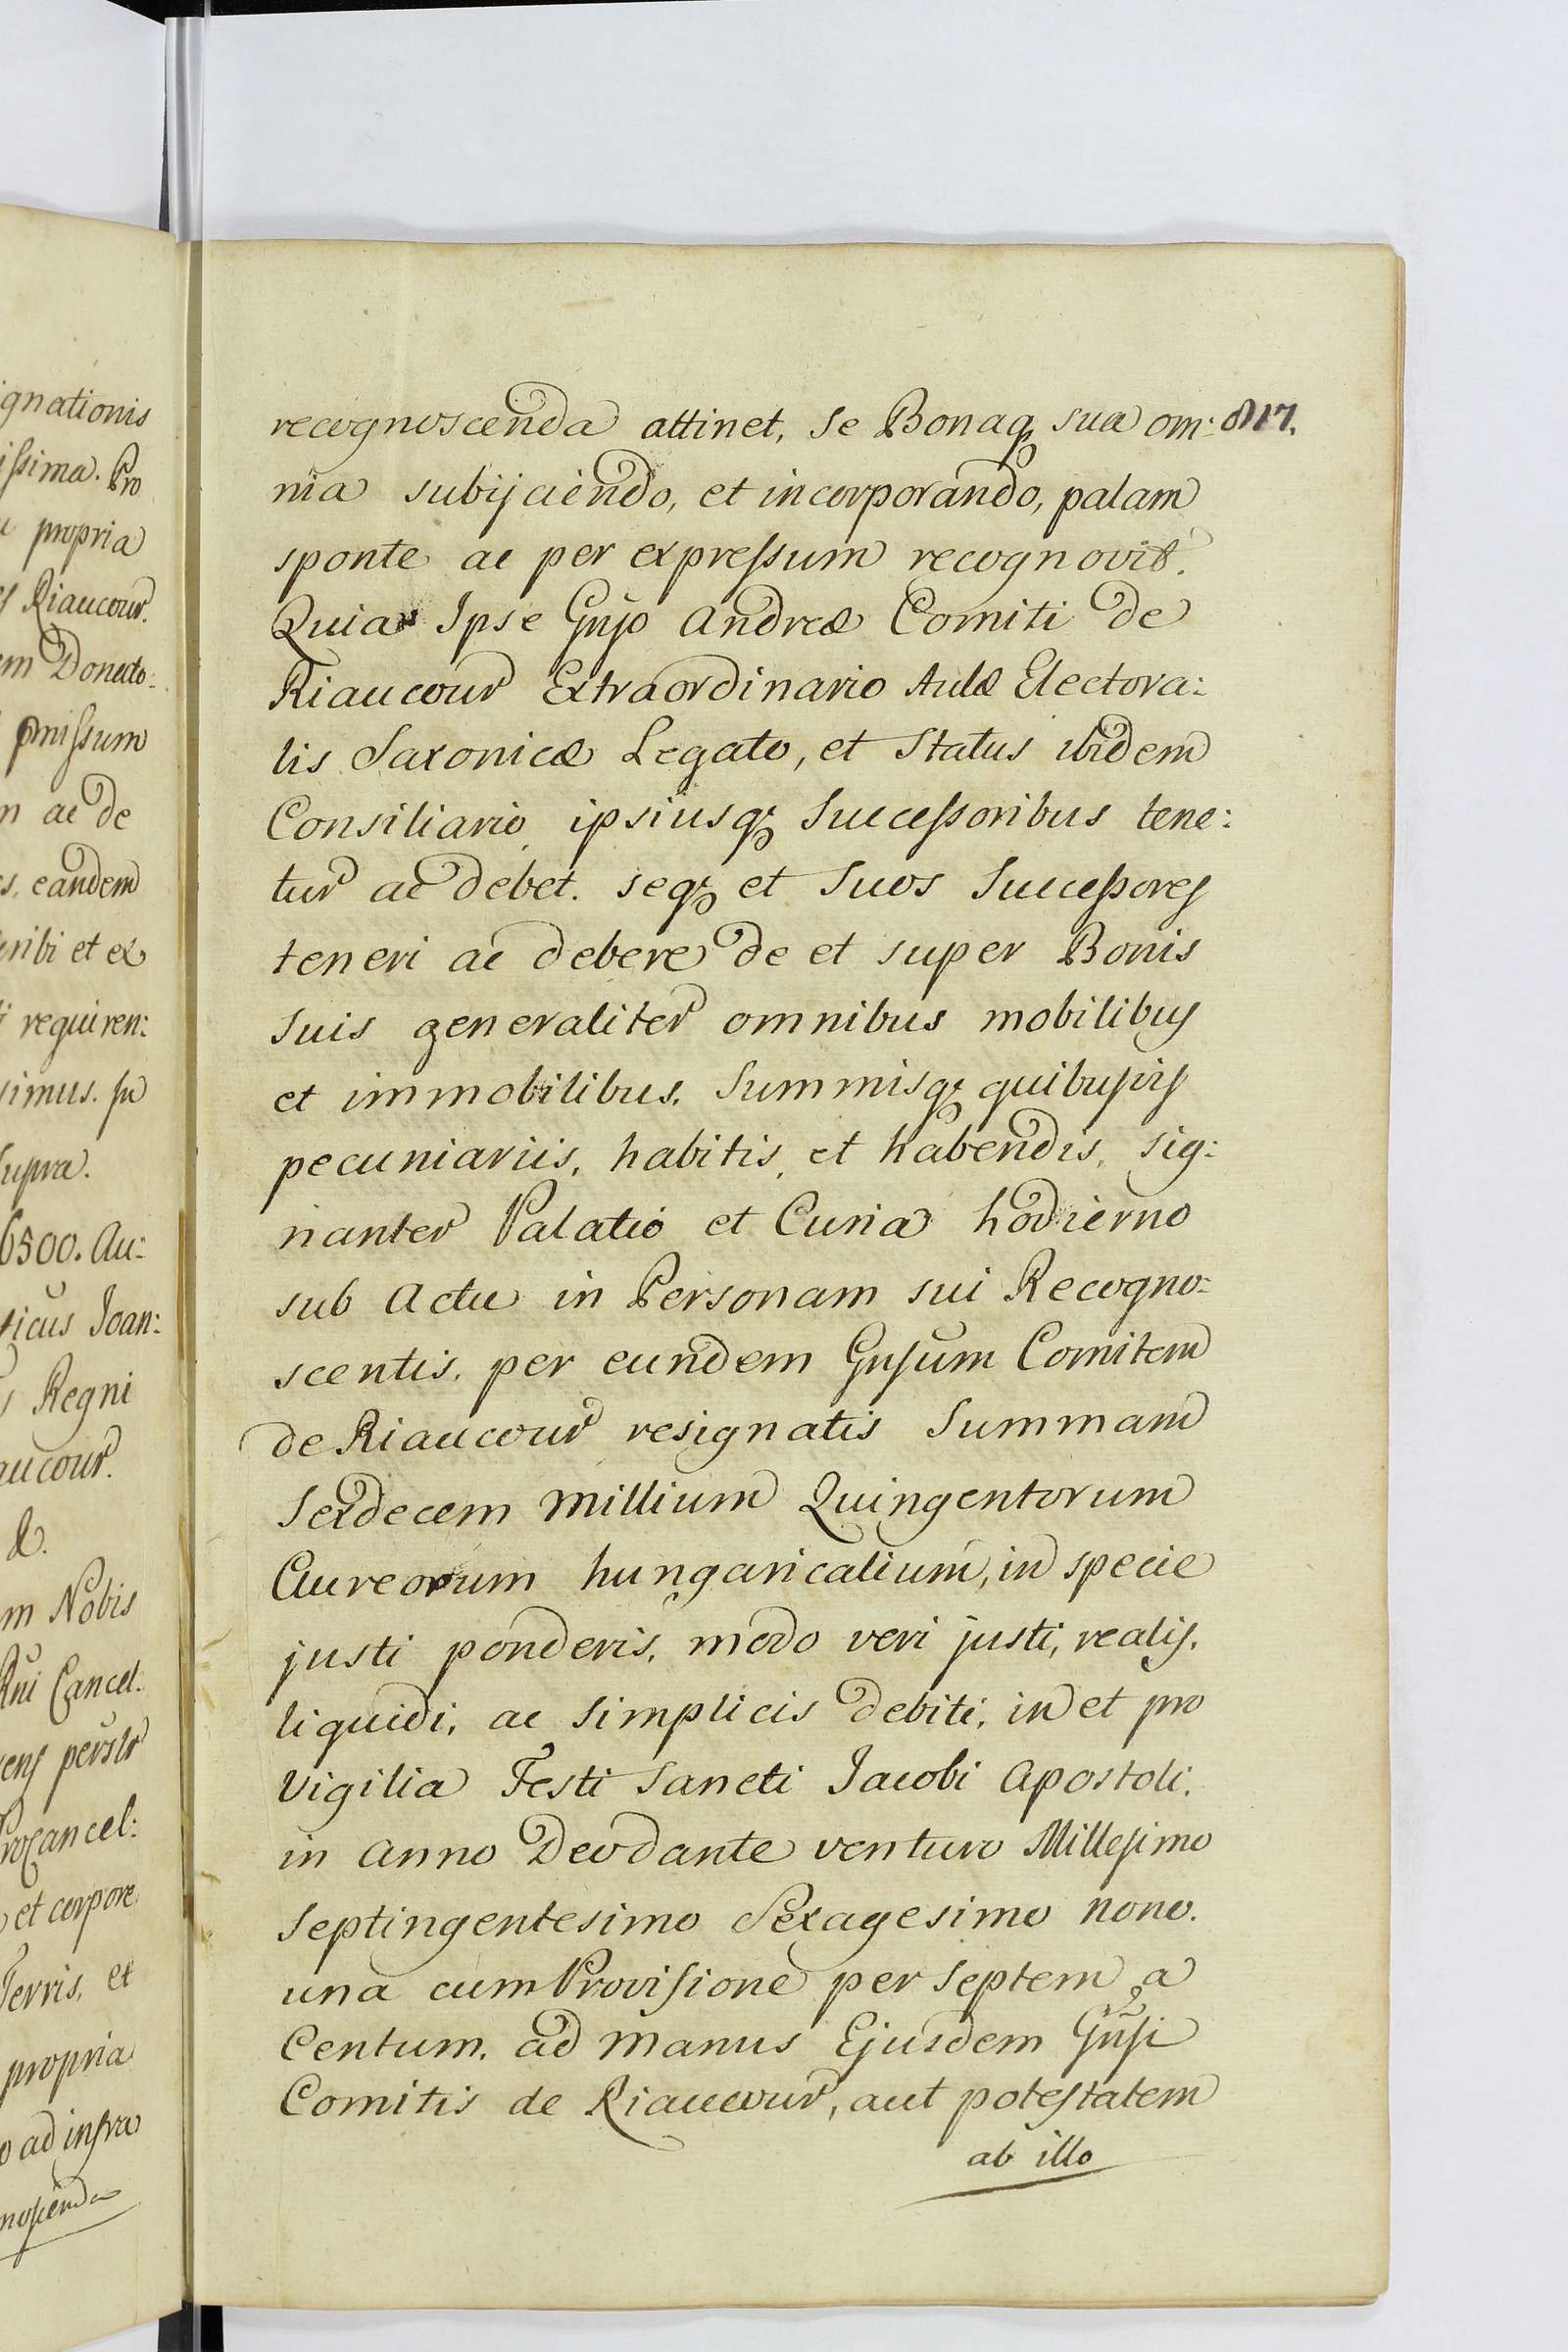 ignationis
issima. Pro
propria
Riaucour.
em Donato:
pmissum
ac de
s. eandem
et ex
requiren:
simus.
supra.
6500. Au:
ticus Joan:
Regni
aucour.
&.
m Nobis
Rni Cancel:
perslr
roCancel:
et corpore
Terris, et
propria
ad infra
noscenda
recognoscenda attinet, se Bonaq3 sua om: 817.
nia subijciendo, et incorporando, palam
sponte ac per expressum recognovit.
Quia Ipse Gnso Andreæ Comiti de
Riaucour Extraordinario Aulæ Electora:
lis Saxonicæ Legato, et Status ibidem
Consiliario ipsiusq3 Successoribus tene:
tur ac debet. seq3 et Suos Successores
teneri ac debere de et super Bonis
suis generaliter omnibus mobilibus
et immobilibus. Summisq3 quibusvis
pecuniariis, habitis, et habendis, sig:
nanter Palatio et Curia hodierno
sub Actu in Personam sui Recogno:
scentis, per eundem Gnsum Comitem
de Riaucour resignatis Summam
Sexdecem Millium Quingentorum
Aureorum hungaricalium, in specie
justi ponderis, modo veri justi, realis,
liquidi, ac simplicis debiti, in et pro
Vigilia Festi Sancti Jacobi Apostoli,
in Anno Deodante venturo Millesimo
Septingentesimo Sexagesimo nono.
una cum Provisione per septem a
Centum, ad manus Ejusdem Gnsi
Comitis de Riaucour, aut potestatem
ab illo